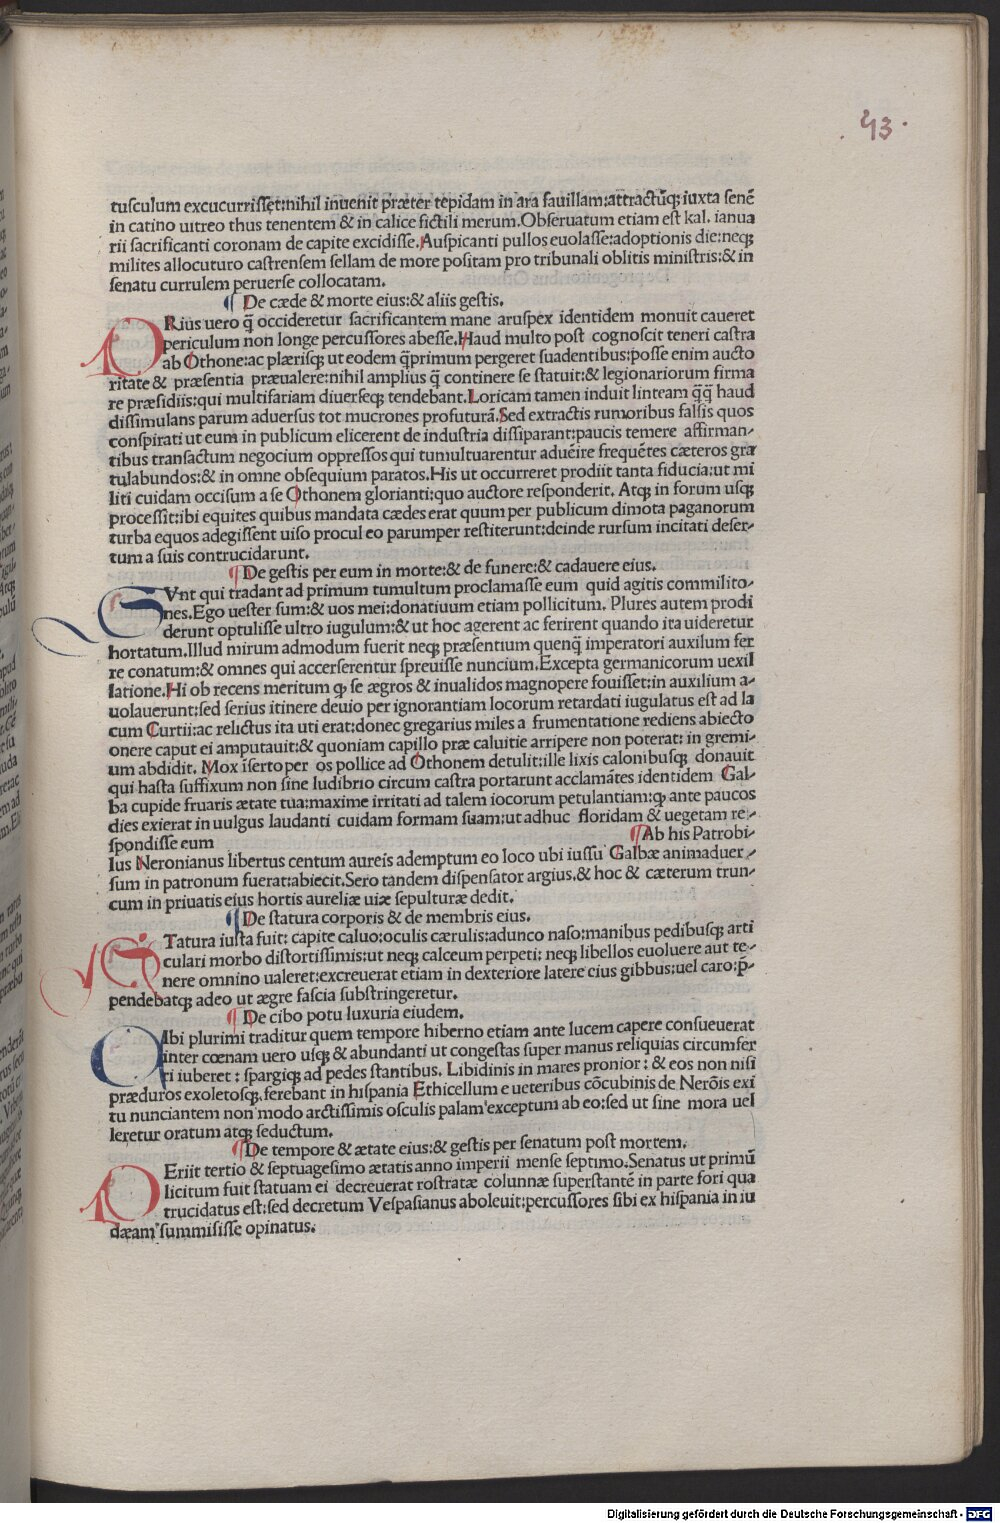 .43.
tusculum excucurrisset:nihil inuenit præter tepidam in ara fauillam:attractũqꝫ iuxta senẽ
in catino uitreo thus tenentem & in calice fictili merum.Obseruatum etiam est kal. ianua
rii sacrificanti coronam de capite excidisse.Auspicanti pullos euolasse:adoptionis die:neqꝫ
milites allocuturo castrensem sellam de more positam pro tribunali oblitis ministris:& in
senatu currulem peruerse collocatam.
¶ De cæde & morte eius:& aliis gestis.
PRius uero q̃ occideretur sacrificantem mane aruspex identidem monuit caueret
periculum non longe percussores abesse.Haud multo post cognoscit teneri castra
ab Othone:ac plærisqꝫ ut eodem q̃primum pergeret suadentibus:posse enim aucto
ritate & præsentia præualere:nihil amplius q̃ continere se statuit:& legionariorum firma
re præsidiis:qui multifariam diuerseqꝫ tendebant.Loricam tamen induit linteam q̃q̃ haud
dissimulans parum aduersus tot mucrones profuturã.Sed extractis rumoribus falsis quos
conspirati ut eum in publicum elicerent de industria dissiparant:paucis temere affirman-
tibus transactum negocium oppressos qui tumultuarentur aduẽire frequẽtes cæteros gra
tulabundos:& in omne obsequium paratos.His ut occurreret prodiit tanta fiducia:ut mi
liti cuidam occisum a se Othonem glorianti:quo auctore responderit. Atqꝫ in forum usqꝫ
processit:ibi equites quibus mandata cædes erat quum per publicum dimota paganorum
turba equos adegissent uiso procul eo parumper restiterunt:deinde rursum incitati deser-
tum a suis contrucidarunt.
¶ De gestis per eum in morte:& de funere:& cadauere eius.
SVnt qui tradant ad primum tumultum proclamasse eum quid agitis commilito-
nes.Ego uester sum:& uos mei:donatiuum etiam pollicitum. Plures autem prodi
derunt optulisse ultro iugulum:& ut hoc agerent ac ferirent quando ita uideretur
hortatum.Illud mirum admodum fuerit neqꝫ præsentium quenq̃ imperatori auxilum fer
re conatum:& omnes qui accerserentur spreuisse nuncium.Excepta germanicorum uexil
latione.Hi ob recens meritum ꝙ se ægros & inualidos magnopere fouisset:in auxilium a-
uolauerunt:sed serius itinere deuio per ignorantiam locorum retardati iugulatus est ad la
cum Curtii:ac relictus ita uti erat:donec gregarius miles a frumentatione rediens abiecto
onere caput ei amputauit:& quoniam capillo præ caluitie arripere non poterat: in gremi-
um abdidit. Mox ĩserto per os pollice ad Othonem detulit:ille lixis calonibusqꝫ donauit
qui hasta suffixum non sine ludibrio circum castra portarunt acclamãtes identidem Gal-
ba cupide fruaris ætate tua:maxime irritati ad talem iocorum petulantiam:ꝙ ante paucos
dies exierat in uulgus laudanti cuidam formam suam:ut adhuc floridam & uegetam re-
spondisse eum ¶Ab his Patrobi-
lus Neronianus libertus centum aureis ademptum eo loco ubi iussu Galbæ animaduer-
sum in patronum fuerat:abiecit.Sero tandem dispensator argius.& hoc & cæterum trun-
cum in priuatis eius hortis aureliæ uiæ sepulturæ dedit.
¶ De statura corporis & de membris eius.
STatura iusta fuit: capite caluo:oculis cærulis:adunco naso:manibus pedibusqꝫ arti
culari morbo distortissimis:ut neqꝫ calceum perpeti: neqꝫ libellos euoluere aut te-
nere omnino ualeret:excreuerat etiam in dexteriore latere eius gibbus:uel caro:p̃-
pendebatqꝫ adeo ut ægre fascia substringeretur.
¶ De cibo potu luxuria eiusdem.
CIbi plurimi traditur quem tempore hiberno etiam ante lucem capere consueuerat
inter cœnam uero usqꝫ & abundanti ut congestas super manus reliquias circumfer
ri iuberet : spargiqꝫ ad pedes stantibus. Libidinis in mares pronior : & eos non nisi
præduros exoletosqꝫ.ferebant in hispania Ethicellum e ueteribus cõcubinis de Nerõis exi
tu nunciantem non modo arctissimis osculis palam exceptum ab eo:sed ut sine mora uel
leretur oratum atqꝫ seductum.
¶De tempore & ætate eius:& gestis per senatum post mortem.
PEriit tertio & septuagesimo ætatis anno imperii mense septimo.Senatus ut primũ
licitum fuit statuam ei decreuerat rostratæ colunnæ superstantẽ in parte fori qua
trucidatus est:sed decretum Vespasianus aboleuit:percussores sibi ex hispania in iu
dæam summisisse opinatus.
Digitalisierung gefördert durch die Deutsche Forschungsgemeinschaft - DFG